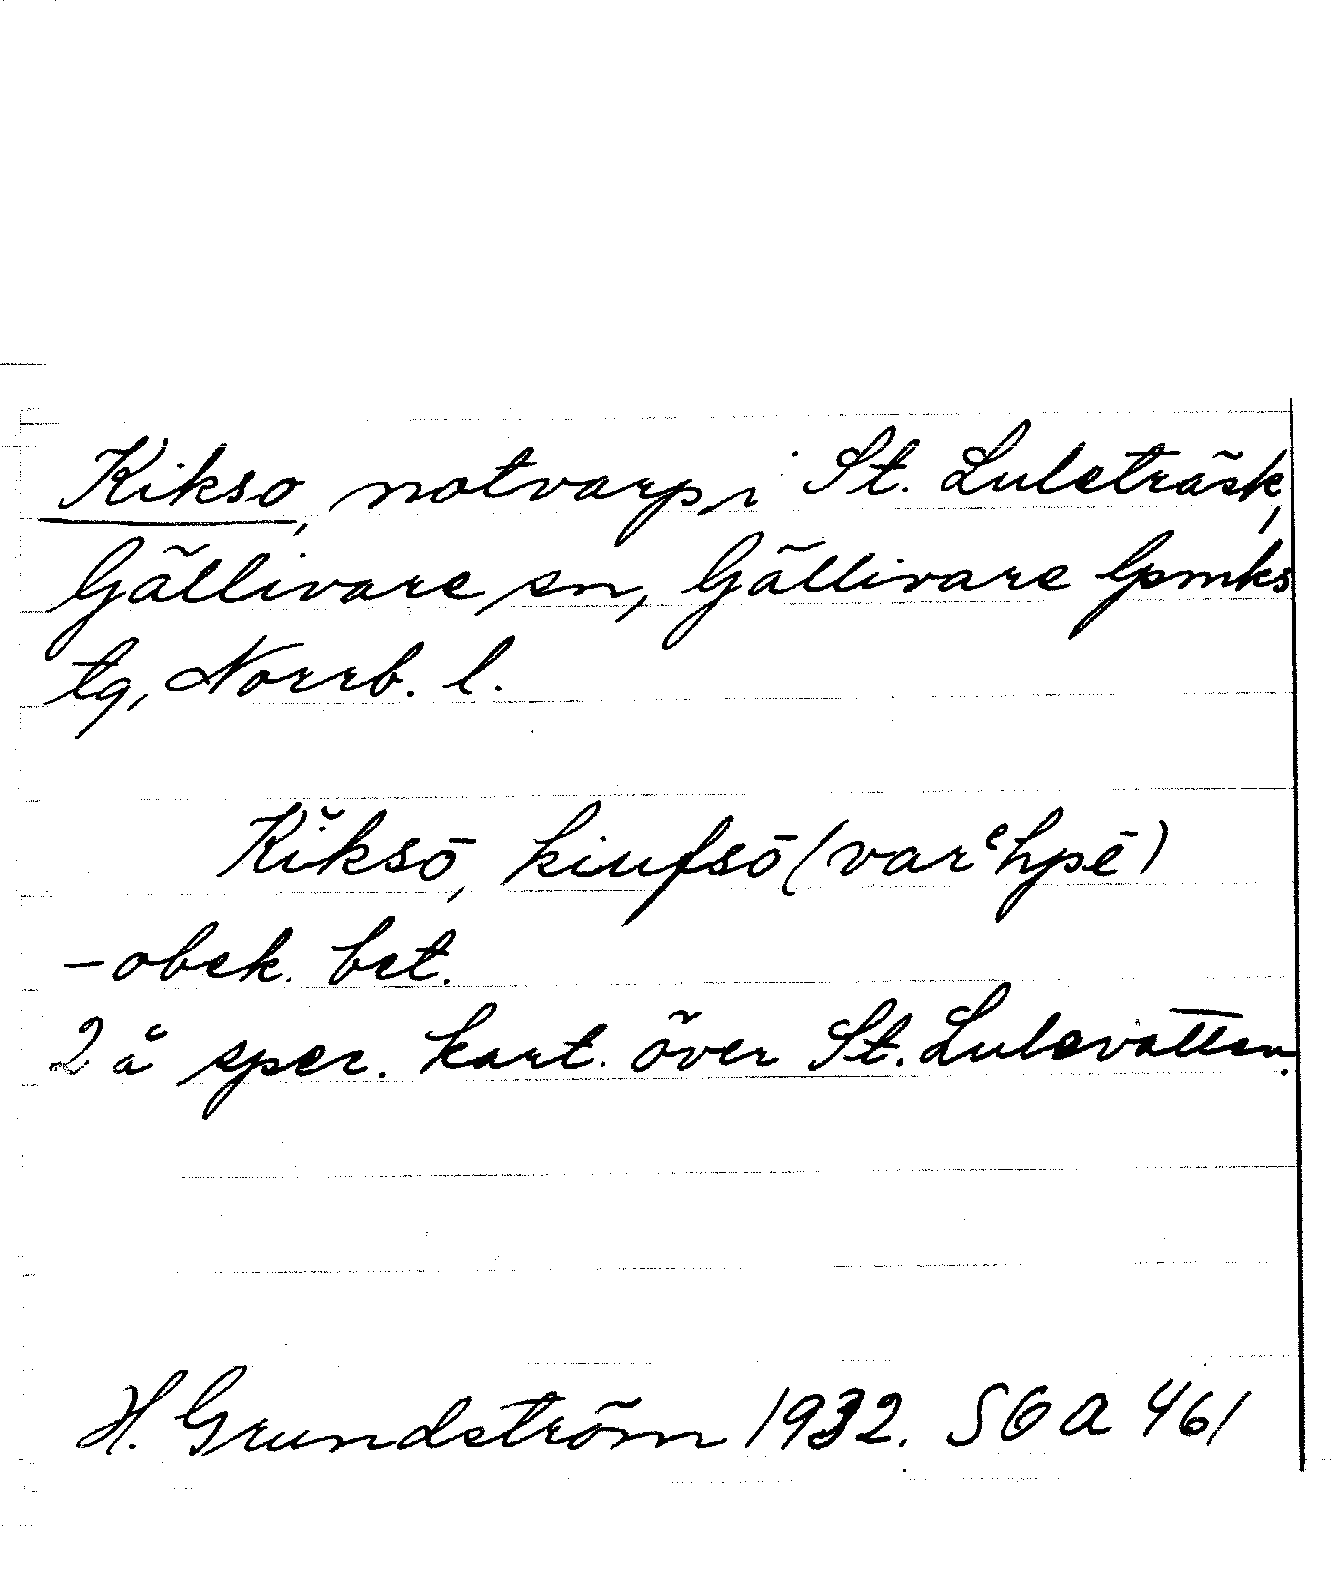 Kikso, notvarp i St. Luleträsk,
Gällivare sn, Gällivare lpmks
tg, Norrb. l.
Kĭksō, kiufsō (varᵉhpē)
– obek. bet.
2 å spec. kart. över St. Lulevatten.
H. Grundström 1932. SOA 461